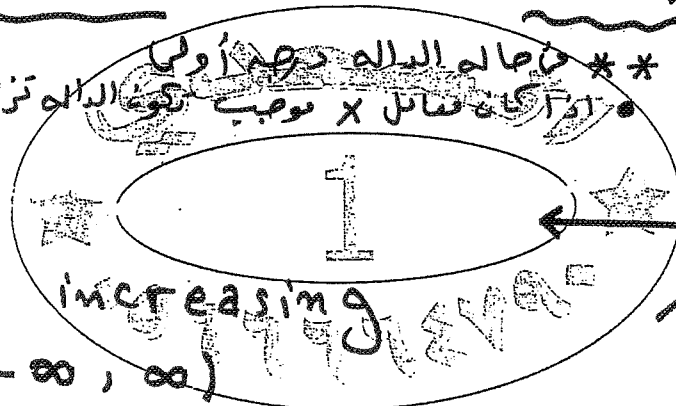 ** في حاله الداله درجه أولى
• اذا كان معامل x موجب تكون الداله تز
1
increasing
-∞, ∞)